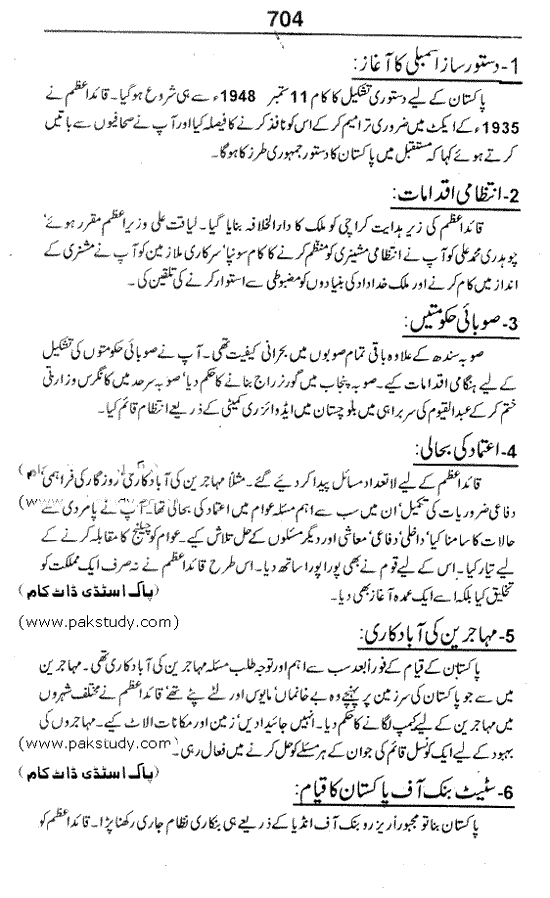 704
1- دستور ساز اسمبلی کا آغاز:
پاکستان کے لیے دستوری تشکیل کا کام 11 ستمبر 1948ء سے ہی شروع ہو گیا۔ قائداعظم نے
1935ء کے ایکٹ میں ضروری ترامیم کر کے اس کو نافذ کرنے کا فیصلہ کیا اور آپ نے صحافیوں سے باتیں
کرتے ہوئے کہا کہ مستقبل میں پاکستان کا دستور جمہوری طرز کا ہوگا۔
2- انتظامی اقدامات:
قائداعظم کی زیر ہدایت کراچی کو ملک کا دارالخلافہ بنایا گیا۔ لیاقت علی وزیراعظم مقرر ہوئے'
چوہدری محمد علی کو آپ نے انتظامی مشینری کو منظم کرنے کا کام سونپا' سرکاری ملازمین کو آپ نے مشنری کے
انداز میں کام کرنے اور ملک خداداد کی بنیادوں کو مضبوطی سے استوار کرنے کی تلقین کی۔
3- صوبائی حکومتیں:
صوبہ سندھ کے علاوہ باقی تمام صوبوں میں بحرانی کیفیت تھی۔ آپ نے صوبائی حکومتوں کی تشکیل
کے لیے ہنگامی اقدامات کیے۔ صوبہ پنجاب میں گورنر راج بنانے کا حکم دیا' صوبہ سرحد میں کانگرس وزارتی
ختم کر کے عبدالقیوم کی سربراہی میں بلوچستان میں ایڈوائزری کمیٹی کے ذریعے انتظام قائم کیا۔
4- اعتماد کی بحالی:
قائداعظم کے لیے لاتعداد مسائل پیدا کر دیئے گئے۔ مثلاً مہاجرین کی آباد کاری' روزگار کی فراہمی'
دفاعی ضروریات کی تکمیل' ان میں سب سے اہم مسئلہ عوام میں اعتماد کی بحالی تھا۔ آپ نے پامردی سے
حالات کا سامنا کیا' داخلی' دفاعی' معاشی اور دیگر مسئلوں کے حل تلاش کیے۔ عوام کو چیلنج کا مقابلہ کرنے کے
لیے تیار کیا۔ اس کے لیے قوم نے بھی پورا پورا ساتھ دیا۔ اس طرح قائداعظم نے نہ صرف ایک مملکت کو
تخلیق کیا بلکہ اسے ایک عمدہ آغاز بھی دیا۔ (پاک اسٹڈی ڈاٹ کام)
(www.pakstudy.com)
5- مہاجرین کی آباد کاری:
پاکستان کے قیام کے فوراً بعد سب سے اہم اور توجہ طلب مسئلہ مہاجرین کی آباد کاری تھی۔ مہاجرین
میں سے جو پاکستان کی سرزمین پر پہنچے وہ بے خانماں' مایوس اور لٹے پٹے تھے' قائداعظم نے مختلف شہروں
میں مہاجرین کے لیے کیمپ لگانے کا حکم دیا۔ انہیں جائیدادیں' زمین اور مکانات الاٹ کیے۔ مہاجروں کی
بہبود کے لیے ایک کونسل قائم کی جو ان کے ہر مسئلے کو حل کرنے میں فعال رہی۔ (www.pakstudy.com)
(پاک اسٹڈی ڈاٹ کام)
6- سٹیٹ بنک آف پاکستان کا قیام:
پاکستان بنا تو مجبوراً ریزرو بنک آف انڈیا کے ذریعے ہی بنکاری نظام جاری رکھنا پڑا۔ قائداعظم کو